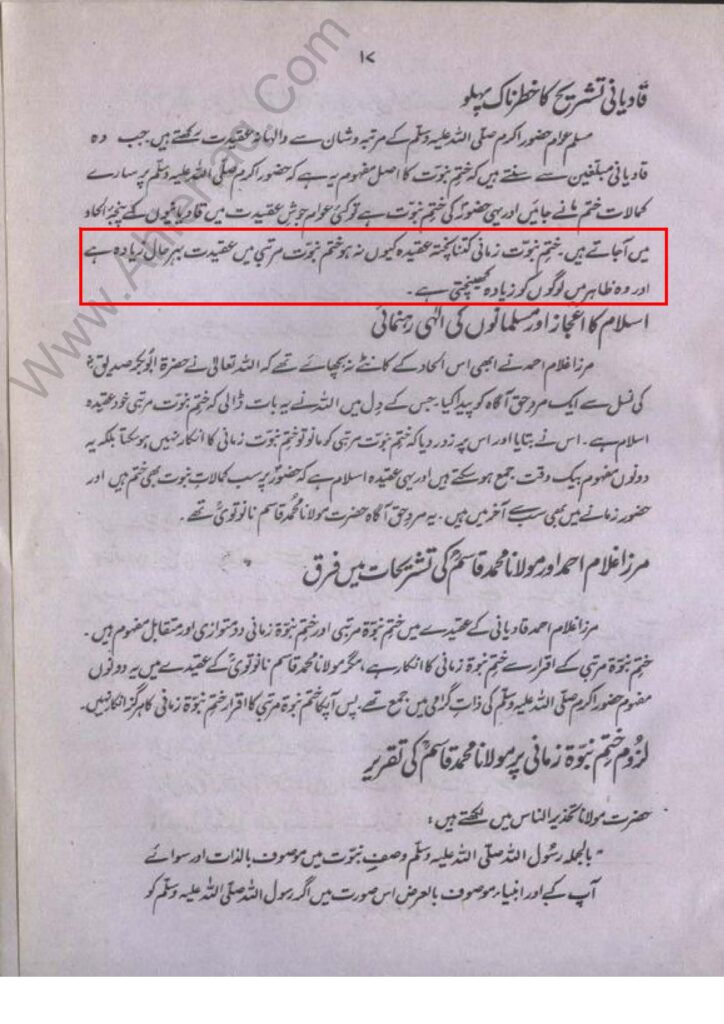 ۱۷
قادیانی تشریح کا خطرناک پہلو
مسلم عوام حضور اکرم صلی اللہ علیہ وسلم کے مرتبہ و شان سے والہانہ عقیدت رکھتے ہیں۔ جب وہ
قادیانی مبلغین سے سنتے ہیں کہ ختم نبوت کا اصل مفہوم یہ ہے کہ حضور اکرم صلی اللہ علیہ وسلم پر سارے
کمالات ختم مانے جائیں اور یہی حضورؐ کی ختم نبوت ہے تو کئی عوام جوش عقیدت میں قادیانیوں کے پنجۂ الحاد
میں آ جاتے ہیں۔ ختم نبوت زمانی کتنا پختہ عقیدہ کیوں نہ ہو ختم نبوت مرتبی میں عقیدت بہرحال زیادہ ہے
اور وہ ظاہر میں لوگوں کو زیادہ کھینچتی ہے۔
اسلام کا اعجاز اور مسلمانوں کی الٰہی رہنمائی
مرزا غلام احمد نے ابھی اس الحاد کے کانٹے نہ بچھائے تھے کہ اللہ تعالیٰ نے حضرۃ ابوبکر صدیقؓ
کی نسل سے ایک مردِ حق آگاہ کو پیدا کیا۔ جس کے دِل میں اللہ نے یہ بات ڈالی کہ ختم نبوت مرتبی خود عقیدہ
اسلام ہے۔ اس نے بتایا اور اس پر زور دیا کہ ختم نبوت مرتبی کو مانو تو ختم نبوت زمانی کا انکار نہیں ہو سکتا بلکہ یہ
دونوں مفہوم بیک وقت جمع ہو سکتے ہیں اور یہی عقیدہ اسلام ہے کہ حضورؐ پر سب کمالاتِ نبوت بھی ختم ہیں اور
حضور زمانے میں بھی سب سے آخر میں ہیں۔ یہ مردِ حق آگاہ حضرت مولانا محمد قاسم نانوتویؒ تھے۔
مرزا غلام احمد اور مولانا محمد قاسمؒ کی تشریحات میں فرق
مرزا غلام احمد قادیانی کے عقیدے میں ختم نبوۃ مرتبی اور ختم نبوۃ زمانی دو متوازی اور متقابل مفہوم ہیں۔
ختم نبوۃ مرتبی کے اقرار سے ختم نبوۃ زمانی کا انکار ہے، مگر مولانا محمد قاسم نانوتویؒ کے عقیدے میں یہ دونوں
مفہوم حضور اکرم صلی اللہ علیہ وسلم کی ذات گرامی میں جمع تھے۔ پس آپ کا ختم نبوۃ مرتبی کا اقرار ختم نبوۃ زمانی کا ہرگز انکار نہیں۔
لزومِ ختم نبوۃ زمانی پر مولانا محمد قاسمؒ کی تقریر
حضرت مولانا تحذیر الناس میں لکھتے ہیں:
"بالجملہ رسول اللہ صلی اللہ علیہ وسلم وصفِ نبوت میں موصوف بالذات اور سوائے
آپ کے اور انبیاء موصوف بالعرض اس صورت میں اگر رسول اللہ صلی اللہ علیہ وسلم کو
Www.Ahlehaq.Com